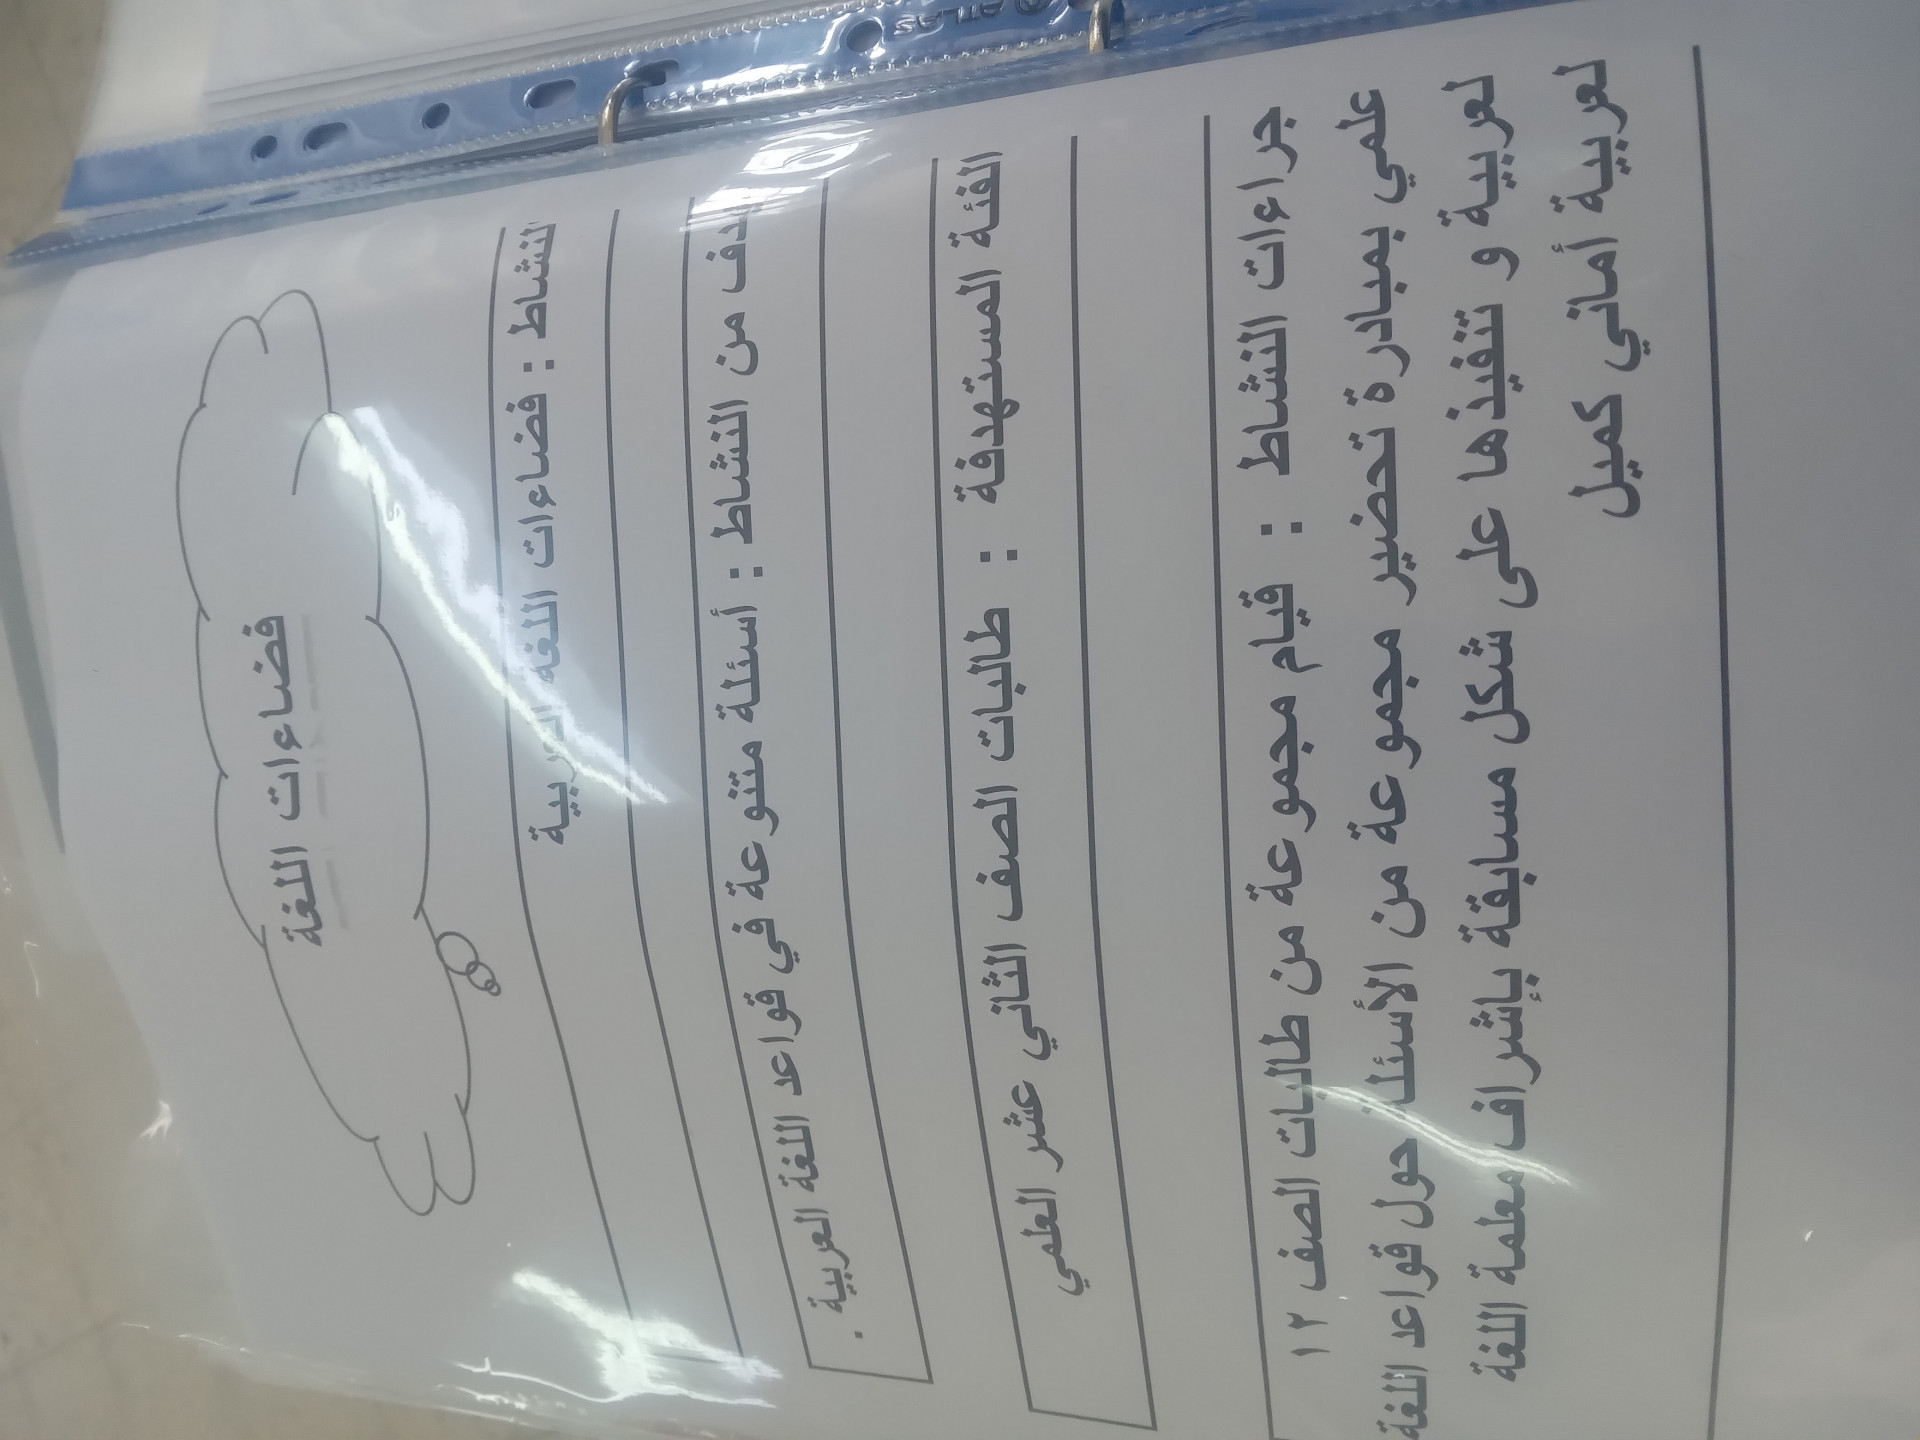 ATLAS
فضاءات اللغة
النشاط : فضاءات اللغة العربية
دف من النشاط : أسئلة متنوعة في قواعد اللغة العربية .
الفئة المستهدفة : طالبات الصف الثاني عشر العلمي
جراءات النشاط : قيام مجموعة من طالبات الصف ١٢
علمي بمبادرة تحضير مجموعة من الأسئلة حول قواعد اللغة
لعربية و تنفيذها على شكل مسابقة بإشراف معلمة اللغة
لعربية أماني كميل